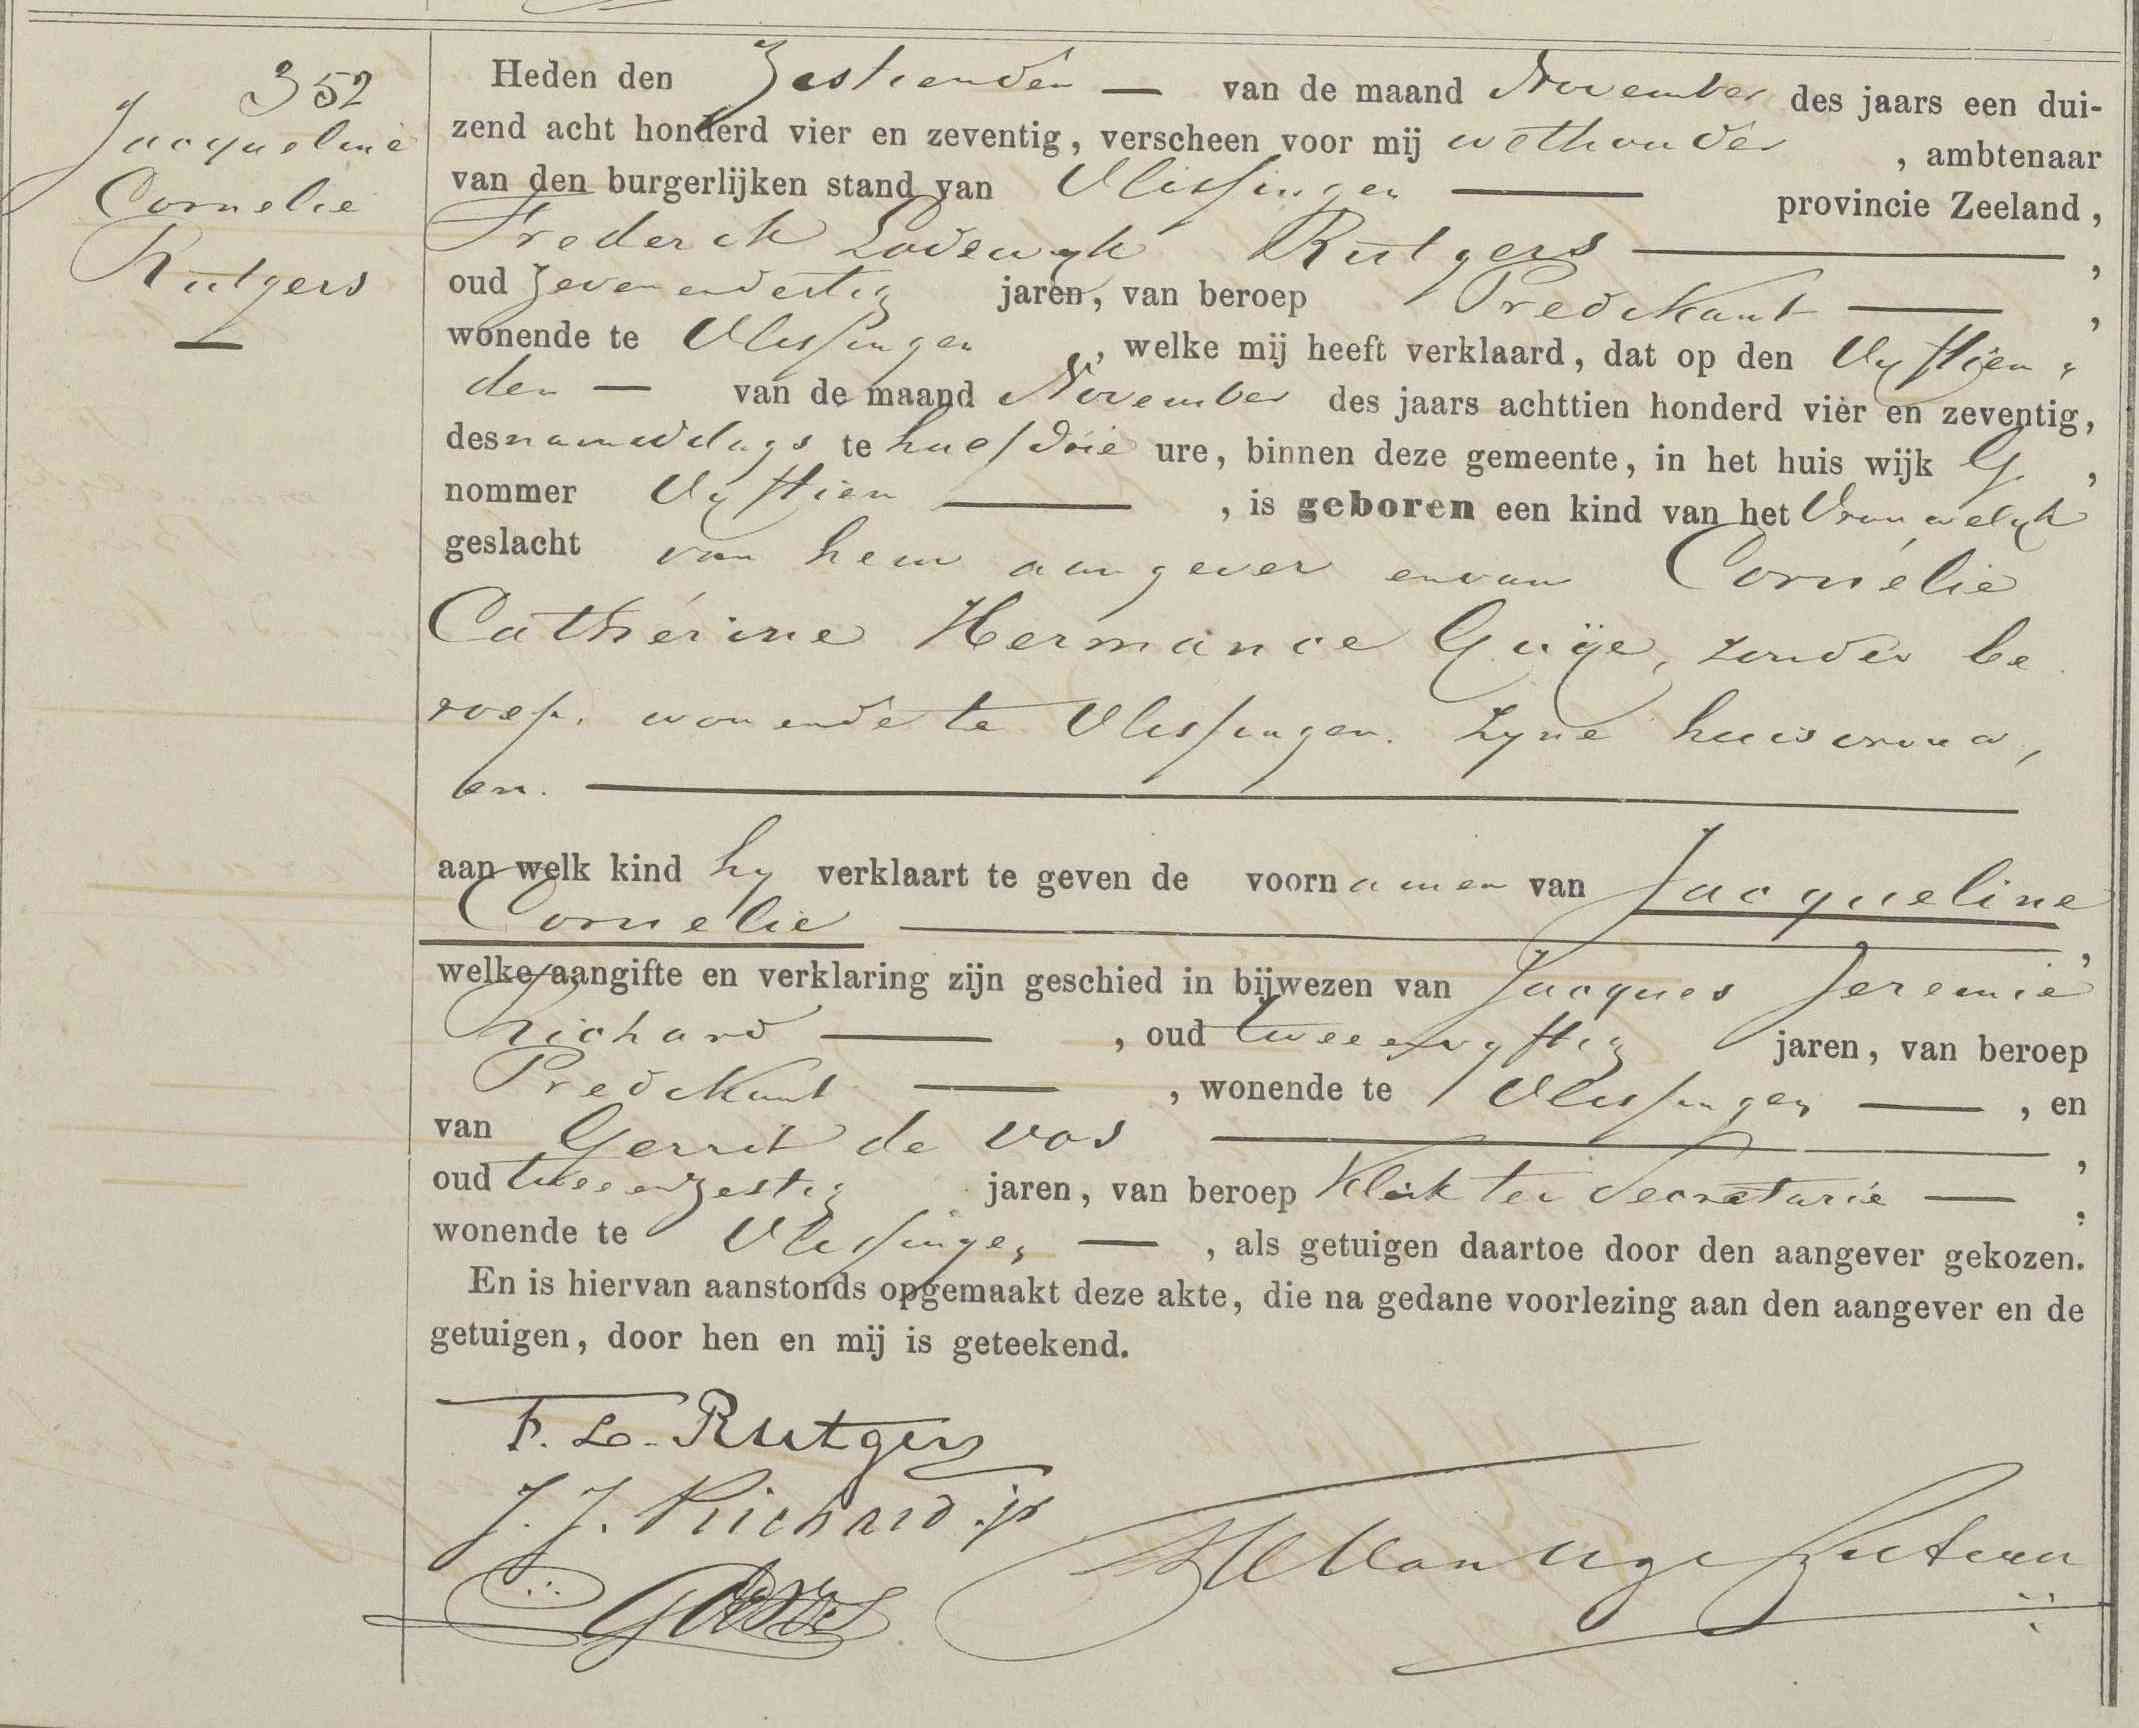 352
Jacqueline
Cornelie
Rutgers
Heden den Zestienden — van de maand November des jaars een dui-
zend acht honderd vier en zeventig, verscheen voor mij wethouder , ambtenaar
van den burgerlijken stand van Vlissingen — provincie Zeeland,
Frederik Lodewyk Rutgers — ,
oud zevenendertig jaren, van beroep Predikant — ,
wonende te Vlissingen , welke mij heeft verklaard, dat op den Vyftien
den — van de maand November des jaars achttien honderd vier en zeventig,
des namiddags te half drie ure, binnen deze gemeente, in het huis wijk G ,
nommer Vyftien — , is geboren een kind van het Vrouwelyk
geslacht van hem aangever en van Cornélie
Cathérine Hermance Guÿe, zonder be
roep, wonende te Vlissingen. zyne huisvrouw,
en. —
aan welk kind hy verklaart te geven de voornamen van Jacqueline
Cornelie — ,
welke aangifte en verklaring zijn geschied in bijwezen van Jacques Jeremie
Richard — , oud tweeenvyftig jaren, van beroep
Predikant — , wonende te Vlissingen — , en
van Gerrit de Vos — ,
oud tweeenzestig jaren, van beroep Klerk ter Secretarie — ,
wonende te Vlissingen — , als getuigen daartoe door den aangever gekozen.
En is hiervan aanstonds opgemaakt deze akte, die na gedane voorlezing aan den aangever en de
getuigen, door hen en mij is geteekend.
F. L. Rutgers
J. J. Richard jr
G de Vos